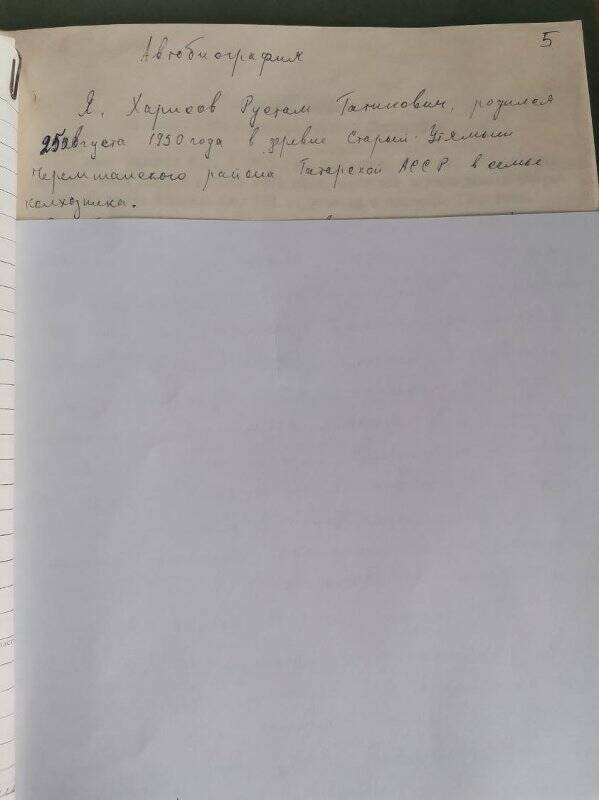 5
Автобиография
Я, Харисов Рустам Гатинович, родился
25 августа 1950 года в деревне Старый Утямыш
Черемшанского района Татарской АССР в семье
колхозника.